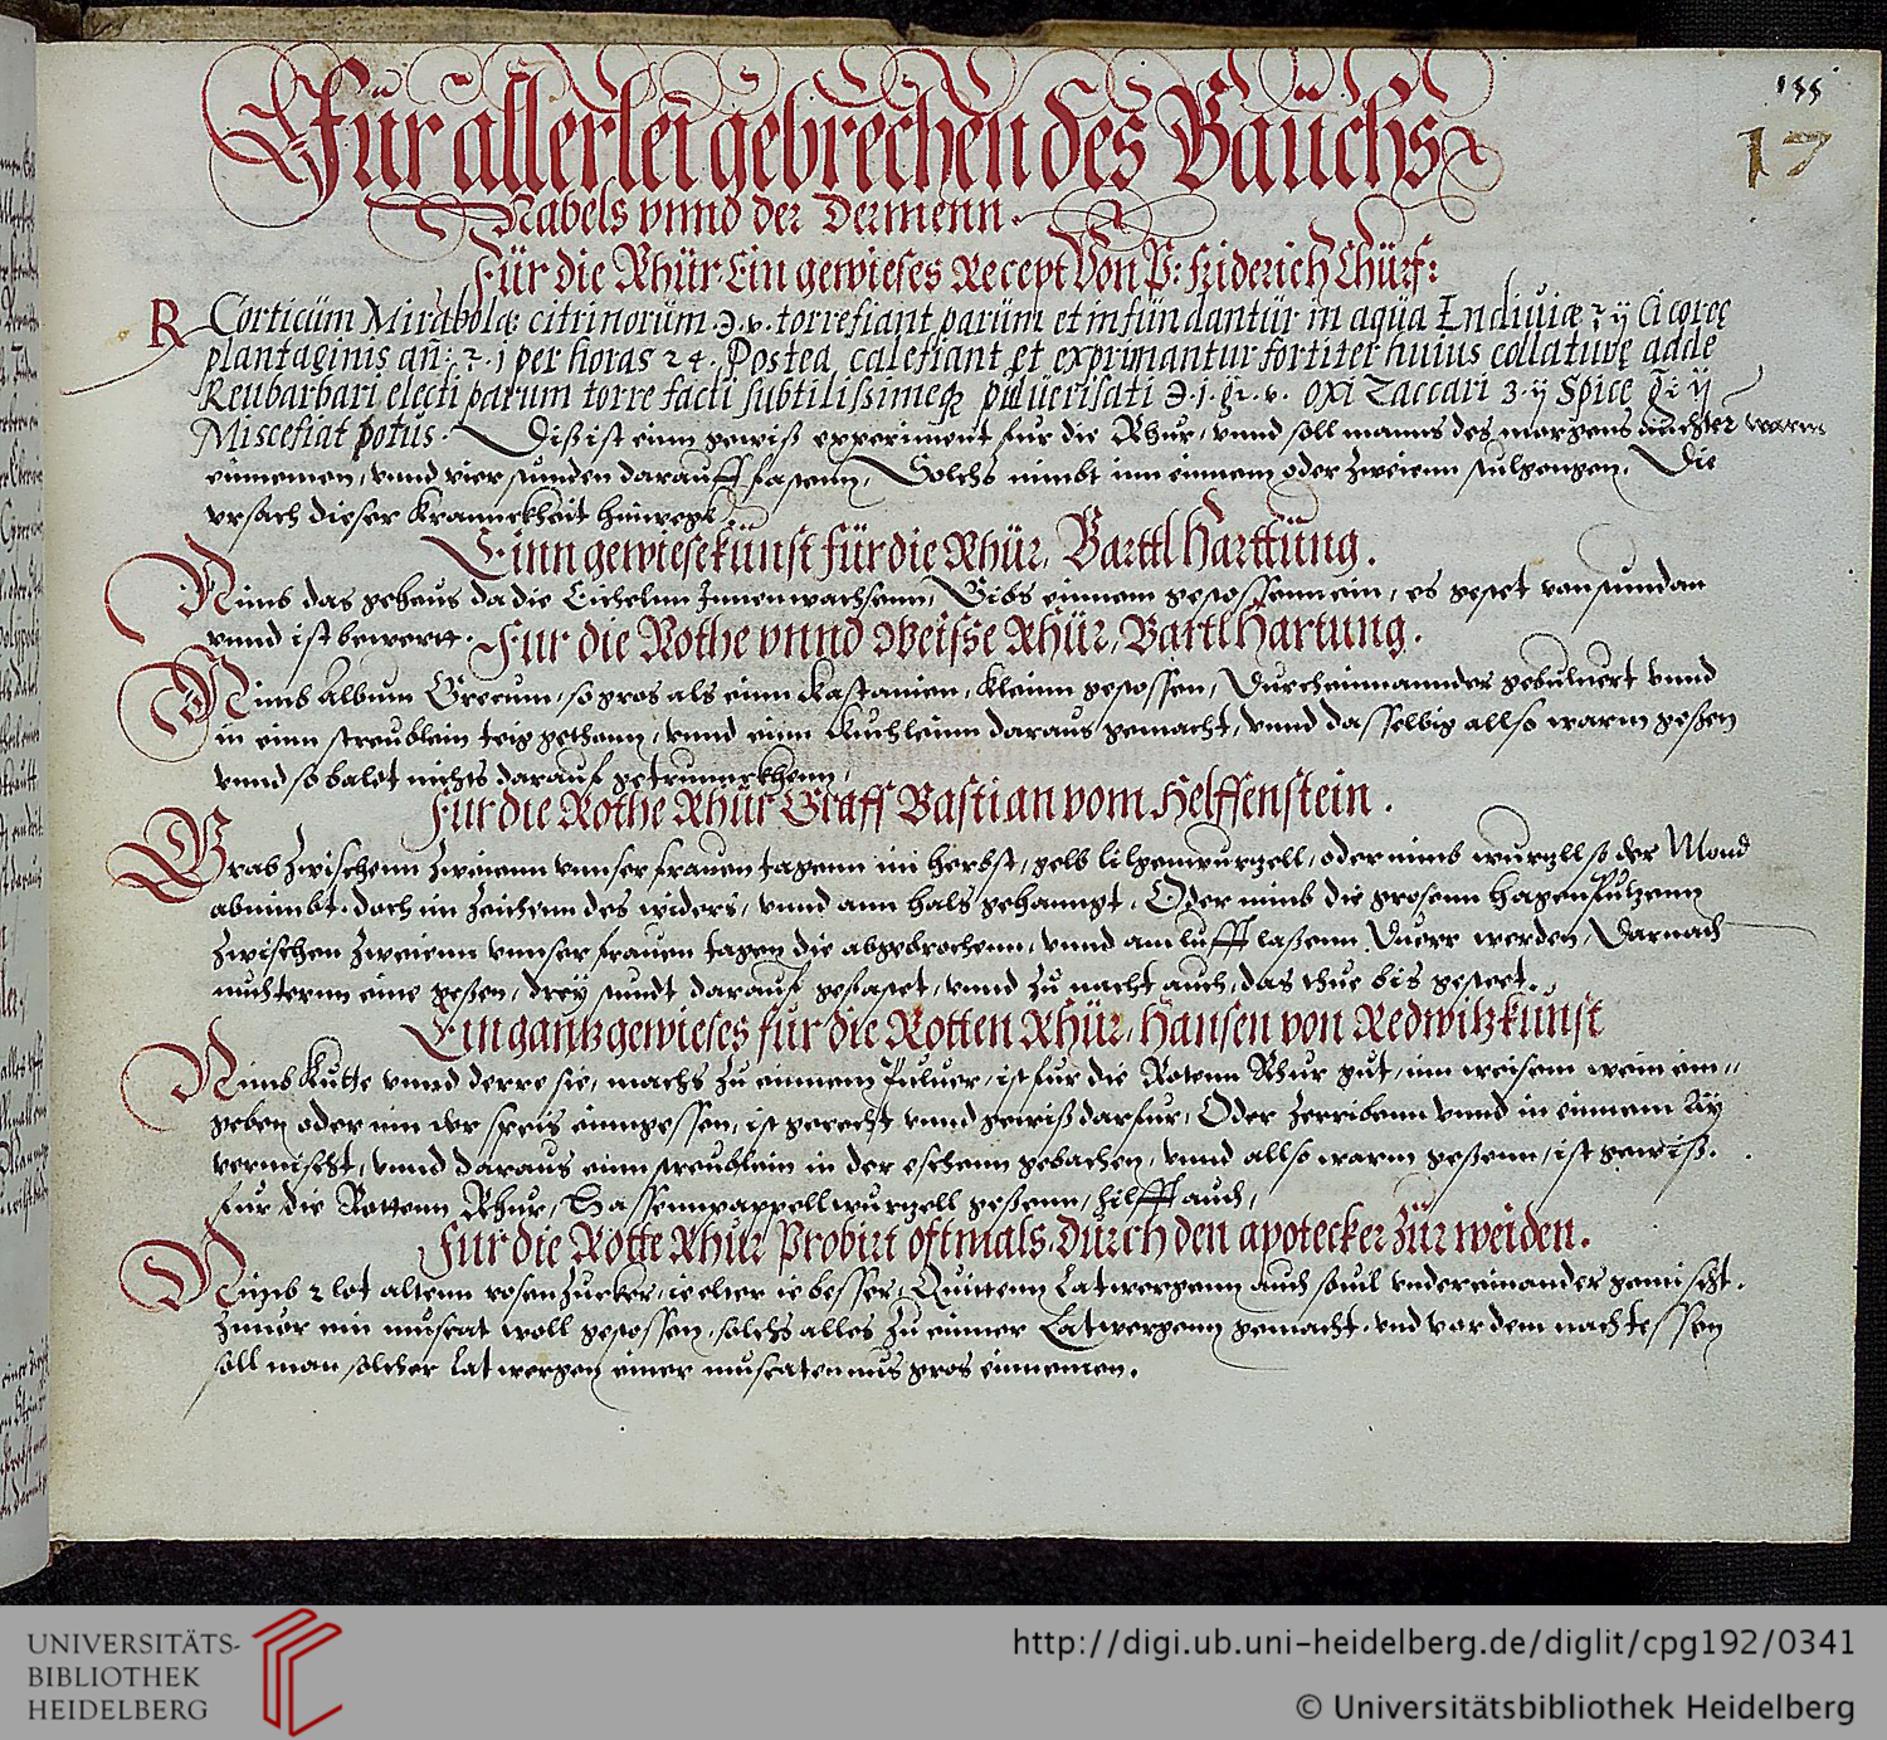 155
17
Für allerlei gebrechen des Bauchs
Nabels vnnd der Dermenn.
Für die Rhür Ein gewieses Recept Von P: Friderich Chürf:
R Corticum Mirabola: citrinorum ℈.v. torrefiant parum et infundantur in aqua Endiuiæ ʒ ij Cicoreę
plantaginis añ: ʒ.j per horas 24. Postea calefiant et exprimantur fortiter huius collature adde
Reubarbari electi parum torrefacti subtilissimeq; puluerisati ℈.j.gr.v. oxi Zaccari 3.ij Spice gr ij
Misce fiat potus. Diß ist einn gewiß experiment fur die Rhur, vnnd soll manns des morgens nuchter warm
einnemen, vnnd vier stunden darauff fastenn, Solchs nimbt inn einnem oder zweienn stulgengen. Die
vrsach dieser KranncKheit hinwegk
Einn gewiese kunst für die Rhür, Barttl Harttüng.
Nimb das geheus da die Eichelnn Innen wachsenn, Gibs einnem gestossenn ein, es gestet von stund an
vnnd ist bewertt. Fur die Rothe vnnd Weisse Rhür, Bartl Hartung.
Nimb Album Grecum, so gros als einn Kastanien, kleinn gestossen, Durcheinnannder gebuluert vnnd
in einn streublein teig gethann, vnnd einn Kuchleinn daraus gemacht, vnnd dasselbig allso warm geßen
vnnd so baldt nichts darauf getrunnckhenn,
Für die Rothe Rhür Graff Bastian vom Helffenstein.
Grab zwischenn zweienn vnnser frauen tagenn im herbst, gelb lilgenwurzell, oder nimb wurzll so der Mond
abnimbt. doch im zeichenn des widers, vnnd ann hals gehanngt. Oder nimb die grosenn hagenputzenn
zwischen zweienn vnnser frauen tagen die abgebrochenn, vnnd am lufft laßenn Duerr werden, Darnach
nuchternn eine geßen, drey stundt darauf gefastet, vnnd zu nacht auch, das thue bis gestet.
Ein gantz gewieses fur die Rotten Rhür, Hansen von Redwitz kunst
Nimb Kutte vnnd derre sie, machs zu einnem Puluer, ist fur die Rotenn Rhur gut, inn weisem wein ein,,
geben oder inn der speis einngessen, ist gerecht vnnd gewiß darfur, Oder zerribenn vnnd in einnem Ay
vermischt, vnnd daraus einn streublein in der eschenn gebachen, vnnd allso warm geßenn, ist gewiß.
fur die Rottenn Rhur, Gassennpappellwurzell geßenn, hilfft auch,
Fur die Rotte Rhur Probirt oftmals. Durch den apotecker zur weiden.
Nimb 2 lot altenn rosenzucker, ie elter ie besser, Quittenn Latwergenn auch souil vndereinander gemischt.
Zuuor ein muscat woll gestossen, solchs alles zu einner Latwergenn gemacht. vnd vor dem nachtessen
soll man solcher latwergen einer muscatennus gros einnemen.
UNIVERSITÄTS-
BIBLIOTHEK
HEIDELBERG
http://digi.ub.uni-heidelberg.de/diglit/cpg192/0341
© Universitätsbibliothek Heidelberg